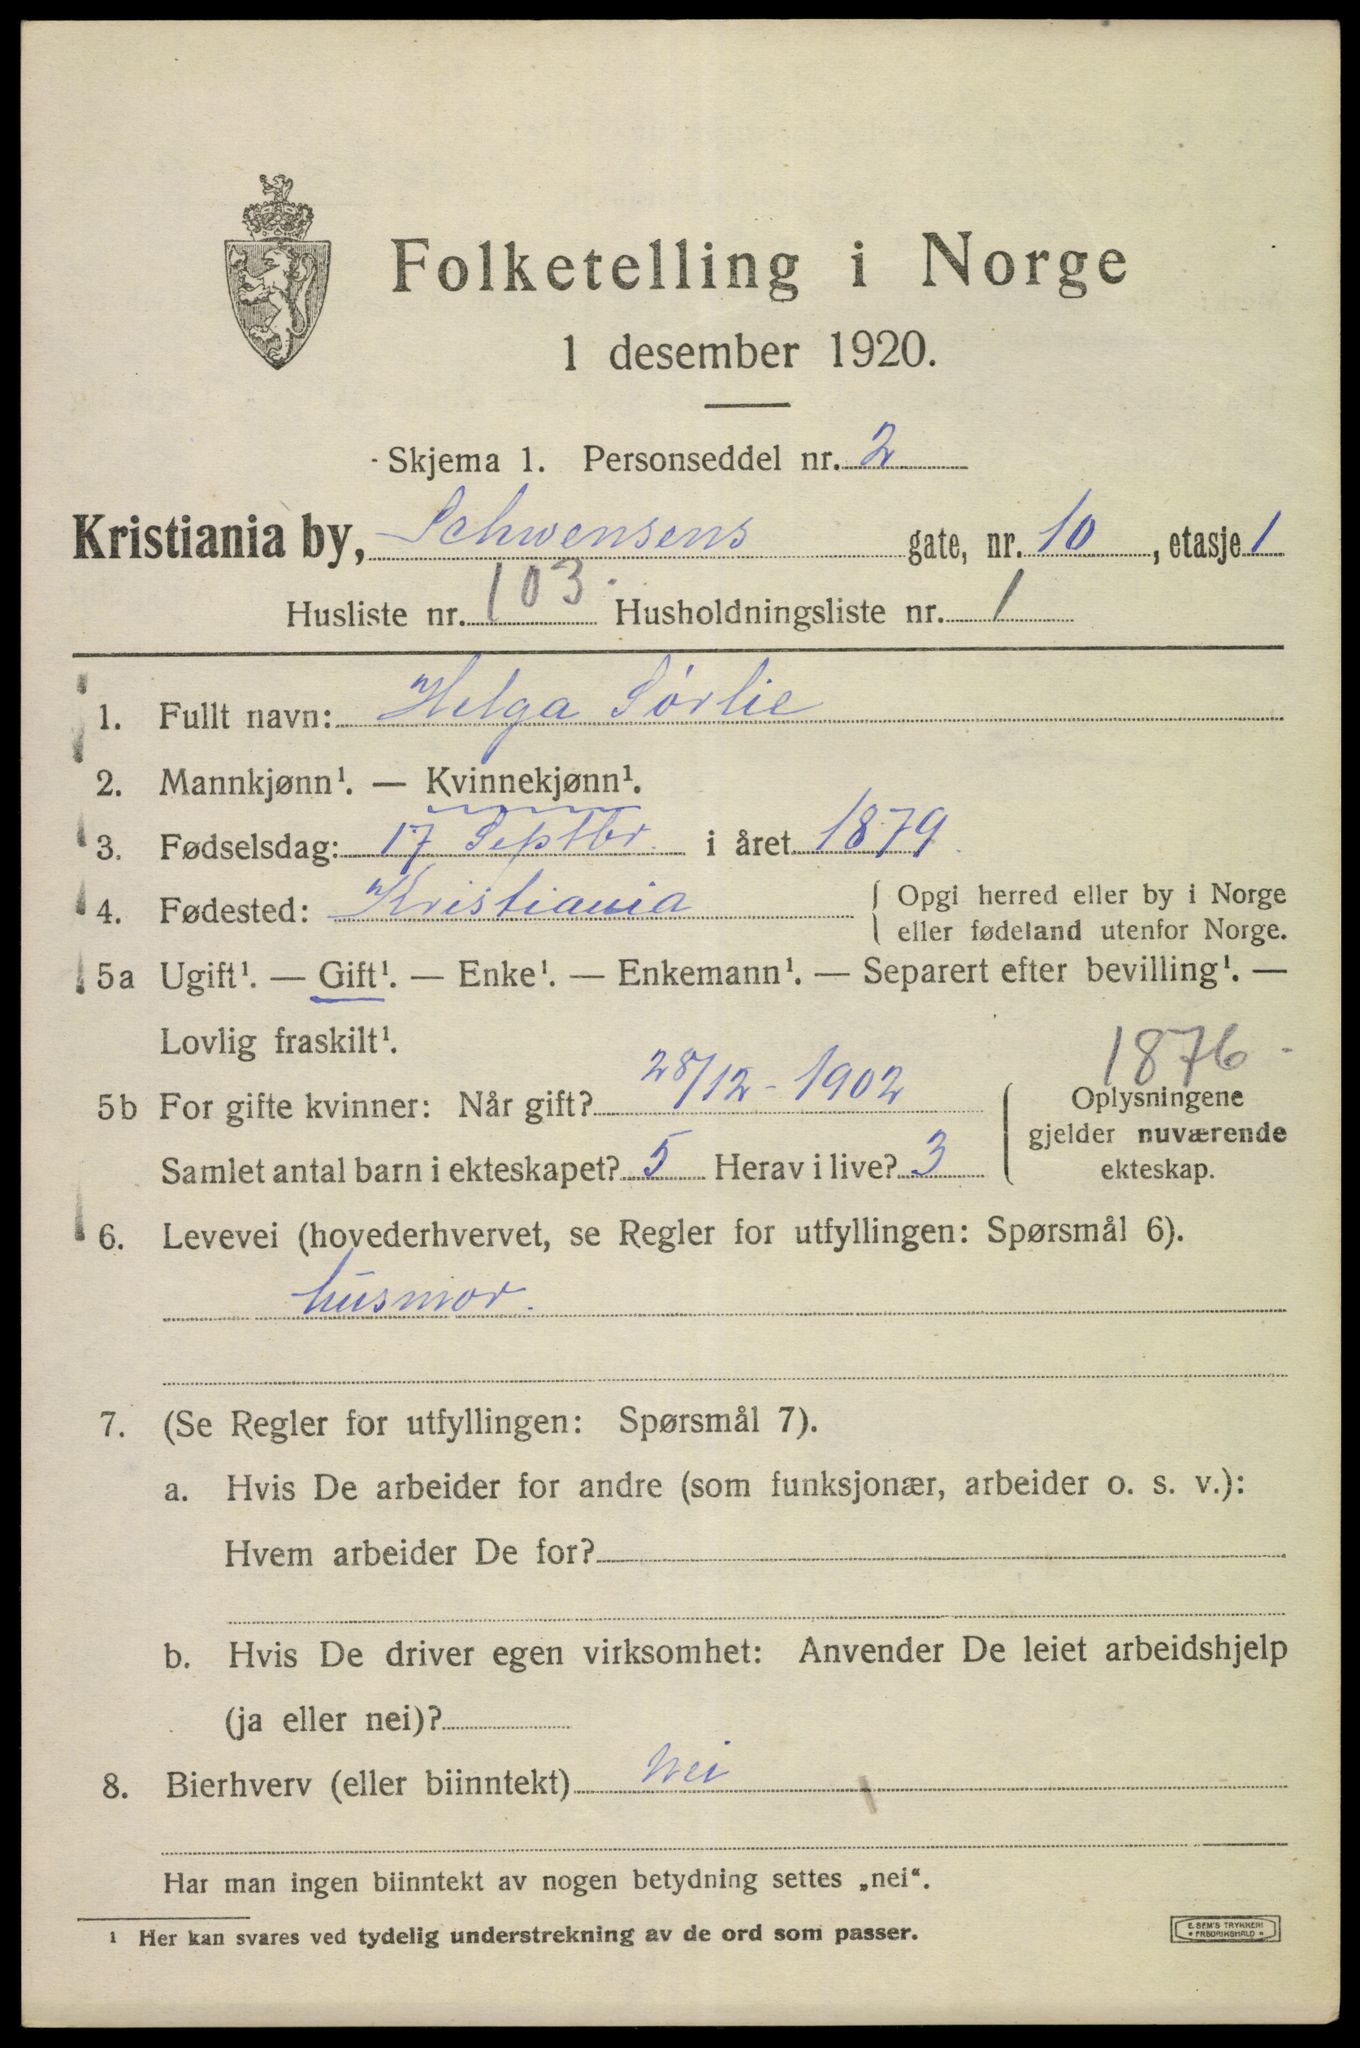 Folketelling i Norge
1 desember 1920.
Skjema 1. Personseddel nr. 2
Kristiania by, Schwensens gate, nr. 10, etasje 1
Husliste nr. 103. Husholdningsliste nr. 1
1. Fullt navn: Helga Sørlie
2. Mannkjønn¹. — Kvinnekjønn¹.
3. Fødselsdag: 17 Septbr. i året 1879.
4. Fødested: Kristiania { Opgi herred eller by i Norge
eller fødeland utenfor Norge.
5a Ugift¹. — Gift¹. — Enke¹. — Enkemann¹. — Separert efter bevilling¹. —
Lovlig fraskilt¹.
1876
5b For gifte kvinner: Når gift? 28/12 - 1902
Samlet antal barn i ekteskapet? 5 Herav i live? 3
Oplysningene
gjelder nuværende
ekteskap.
6. Levevei (hovederhvervet, se Regler for utfyllingen: Spørsmål 6).
husmor.
7. (Se Regler for utfyllingen: Spørsmål 7).
a. Hvis De arbeider for andre (som funksjonær, arbeider o. s. v.):
Hvem arbeider De for?
b. Hvis De driver egen virksomhet: Anvender De leiet arbeidshjelp
(ja eller nei)?
8. Bierhverv (eller biinntekt) Nei
Har man ingen biinntekt av nogen betydning settes „nei“.
¹ Her kan svares ved tydelig understrekning av de ord som passer.
E. SEM'S TRYKKERI
* FREDRIKSHALD *